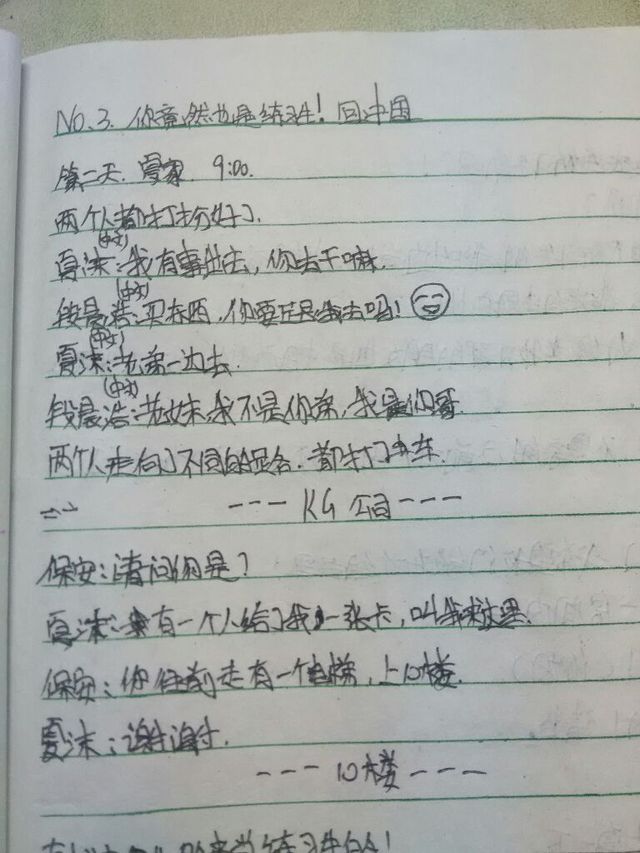 No.3. 你竟然也是练习生！回中国
第二天. 夏家. 9:00.
两个人都打扮好了.
(中文)
夏沫：我有事出去，你去干嘛.
(中文)
段晨浩：买东西，你要跟我去吗！
(中文)
夏沫：老弟一边去.
(中文)
段晨浩：老妹，我不是你弟，我是你哥.
两个人走向了不同的路口. 都打了车.
--- KG 公司 ---
保安：请问你是？
夏沫：有一个人给了我一张卡，叫我来这里.
保安：你往前走有一个电梯，上10楼.
夏沫：谢谢.
--- 10楼 ---